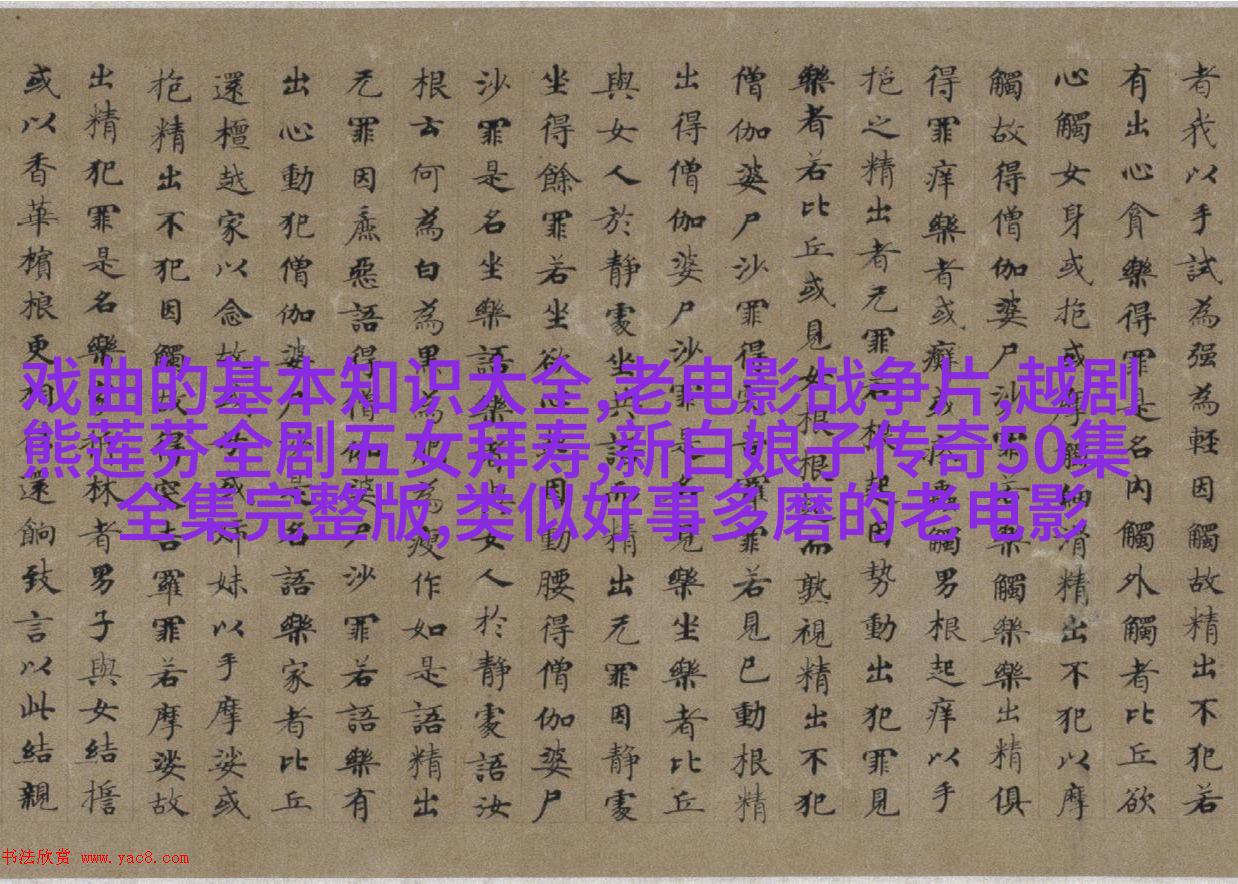 者我以手試為强為輕因觸故精出不犯若
有出心貪樂得罪是名內觸外觸者比丘欲
心觸女身或抱或摩觸細滑精出不犯以摩
觸故得僧伽婆尸沙罪樂觸樂樂出精俱
得罪痒樂者或癬或觸男根起痒以手
抱之精出者无罪若根起因勢動出犯罪見
樂者若比丘或見女根根起而熟視精出不犯
僧伽婆尸沙罪得罪若見已動根精
出得僧伽婆尸沙罪是名見樂坐樂者比丘
與女人於靜處坐共語而精出无罪因靜處
坐得餘罪若坐欲心是因動腰得僧伽婆尸
沙罪是名坐樂語樂者與女人於靜處語汝
根云何為白為黑為肥為瘦作如是語精出
无罪因麁惡語得僧伽婆尸沙罪若語樂有
出心動犯僧伽婆尸沙是名語樂家者比丘
還檀越家以念故母或姉妹以手摩娑或
抱精出不犯因觸故得突吉羅罪若摩娑故
出精犯罪是名樂家折林者男子與女結誓
或以香華檳榔更相往還餉致言以此結親
戏曲的基本知识大全,老电影战争片,越剧
熊莲芬全剧五女拜寿,新白娘子传奇50集
全集完整版,类似好事多磨的老电影
书法欣赏 www.yac8.com